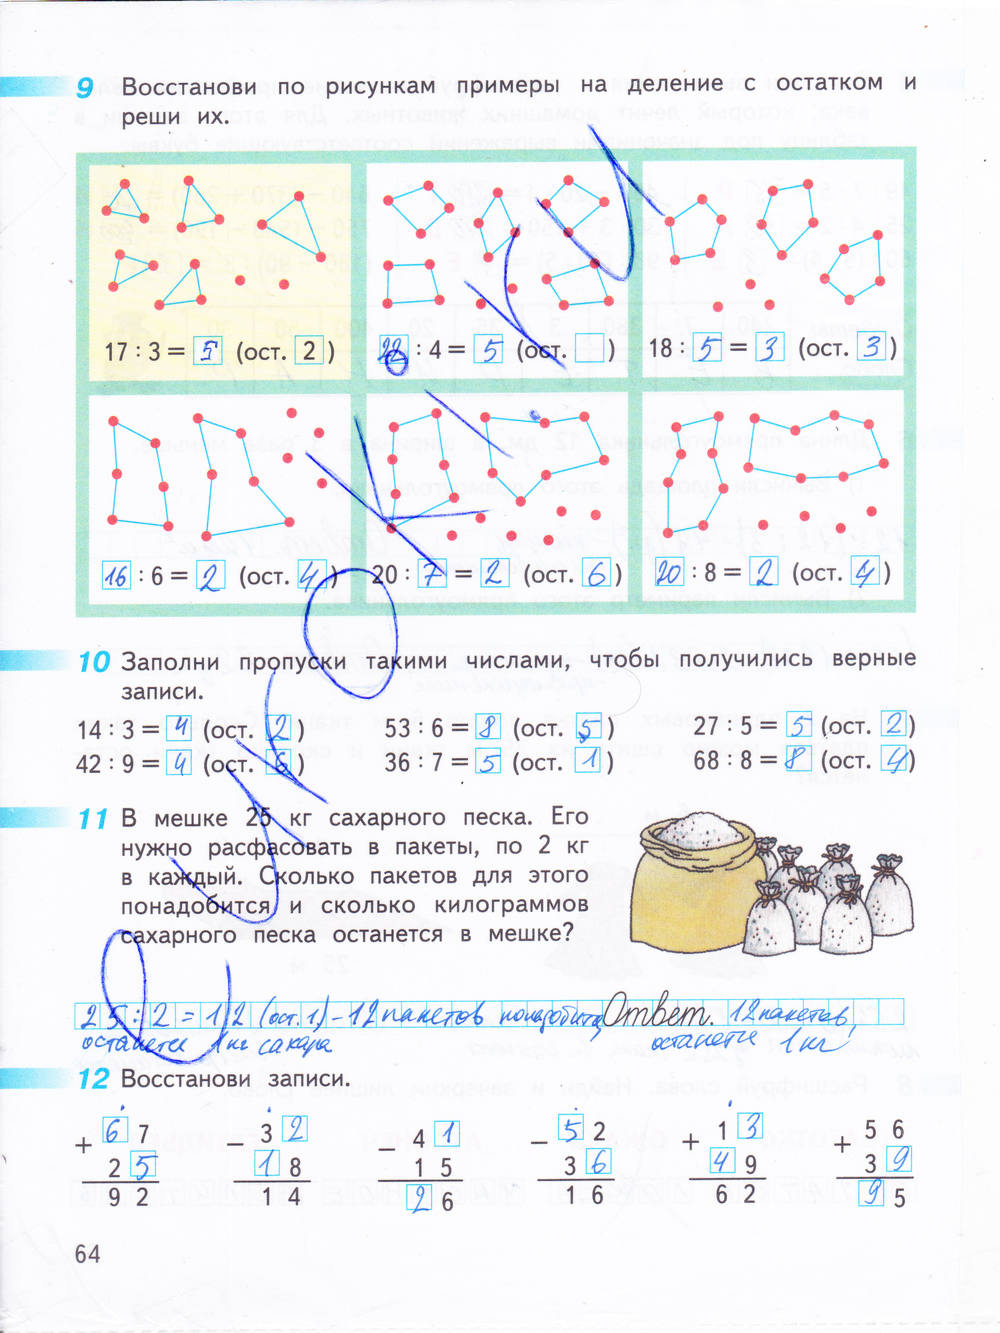 9 Восстанови по рисункам примеры на деление с остатком и
реши их.
17 : 3 = 5 (ост. 2 )
22 : 4 = 5 (ост. )
18 : 5 = 3 (ост. 3 )
16 : 6 = 2 (ост. 4 )
20 : 7 = 2 (ост. 6 )
20 : 8 = 2 (ост. 4 )
10 Заполни пропуски такими числами, чтобы получились верные
записи.
14 : 3 = 4 (ост. 2 )
53 : 6 = 8 (ост. 5 )
27 : 5 = 5 (ост. 2 )
42 : 9 = 4 (ост. 6 )
36 : 7 = 5 (ост. 1 )
68 : 8 = 8 (ост. 4 )
11 В мешке 25 кг сахарного песка. Его
нужно расфасовать в пакеты, по 2 кг
в каждый. Сколько пакетов для этого
понадобится и сколько килограммов
сахарного песка останется в мешке?
25 : 2 = 12 (ост. 1) – 12 пакетов Ответ. 12 пакетов,
останется 1 кг сахара останется 1 кг
12 Восстанови записи.
6 7 3 2 4 1 5 2 1 3 5 6
+ – – – + +
2 5 1 8 1 5 3 6 4 9 3 9
9 2 1 4 2 6 1 6 6 2 9 5
64